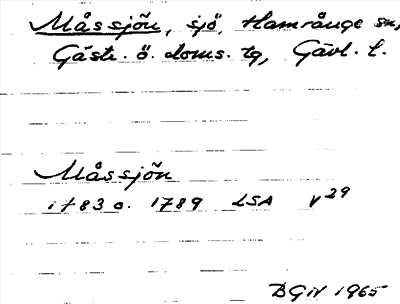 Måssjön, sjö, Hamrånge sn,
Gästr. ö. doms. tg, Gävl. l.
Måssjön
1783 o. 1789 LSA V29
BGiV 1965